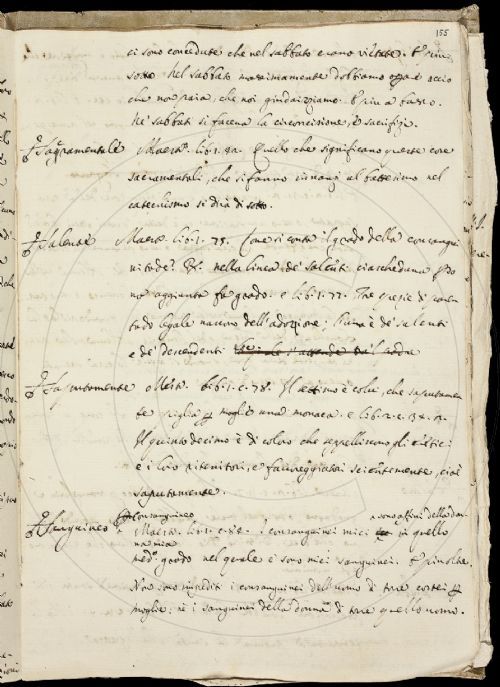 155
ci sono concedute che nel sabbato erano vietate. E piu
sotto Nel sabbato massimamente dobbiamo accio
che non paia, che noi giudaizziamo. E piu a basso.
Ne' sabbati si faceua la circoncisione, e sacrifizi.
Sagramentale Maestr. lib. 1. 92. Quello che significano queste cose
sacramentali, che si fanno innanzi al battesimo nel
catechismo si dirà di sotto.
Salenti Maestr. lib. 1. 75. Come si conte il grado della consangui
nitade? R. nella linea de' salenti ciascheduna perso
na aggiunta fa grado. e lib. 1. 77. Tre spezie di paren
tado legale nascono dell'adozione; Prima è de' salenti
e de' descendenti
Saputamente Maestr. lib. 1. c. 78. Il settimo è colui, che saputamen
te piglia per moglie una monaca. e lib. 2. c. 34.
Il quinto decimo è di coloro che seppelliscono gli eretici
e i loro ritenitori, e fauoreggiatori scientemente, cioè
saputamente.
Sanguineo consanguineo
Maestr. lib. 1. c. 82. i consanguinei miei sono affini della don-
na mia in quello
med.o grado nel quale e' sono miei sanguinei. E piu oltre.
Non sono impediti i consanguinei dell'uomo di torre costei per
moglie: nè i sanguinei della donna di torre quello uomo.